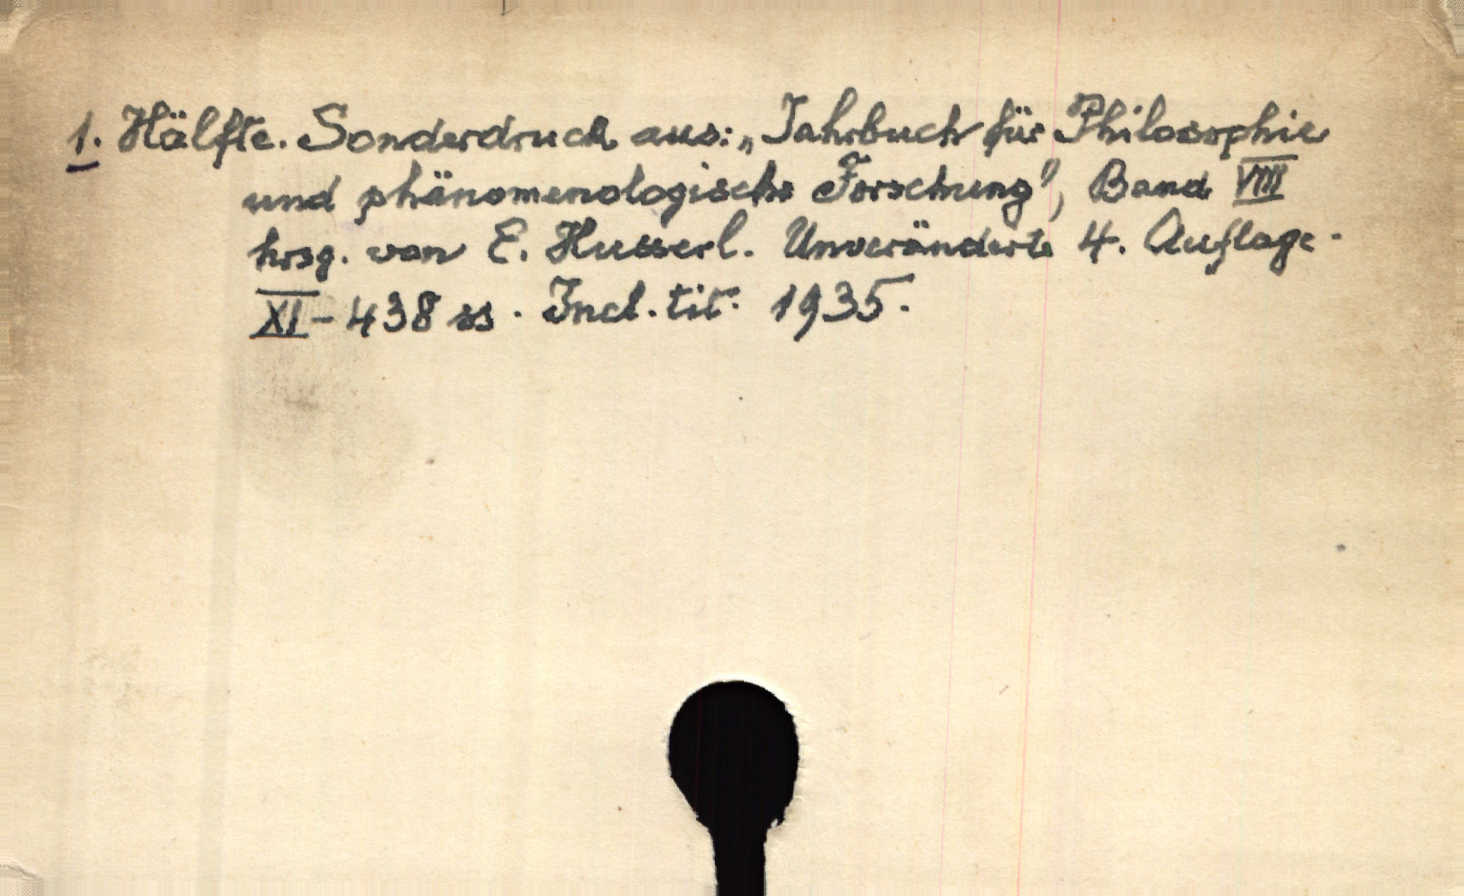 1. Hälfte. Sonderdruck aus: „Jahrbuch für Philosophie
und phänomenologische Forschung", Band VIII
hrsg. von E. Husserl. Unveränderte 4. Auflage.
XI - 438 ss. Incl. tit. 1935.